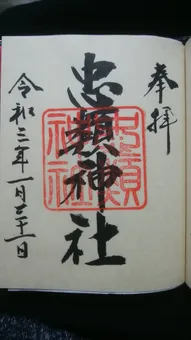 奉拝
忠類神社
令和二年一月三十一日
忠類
神社